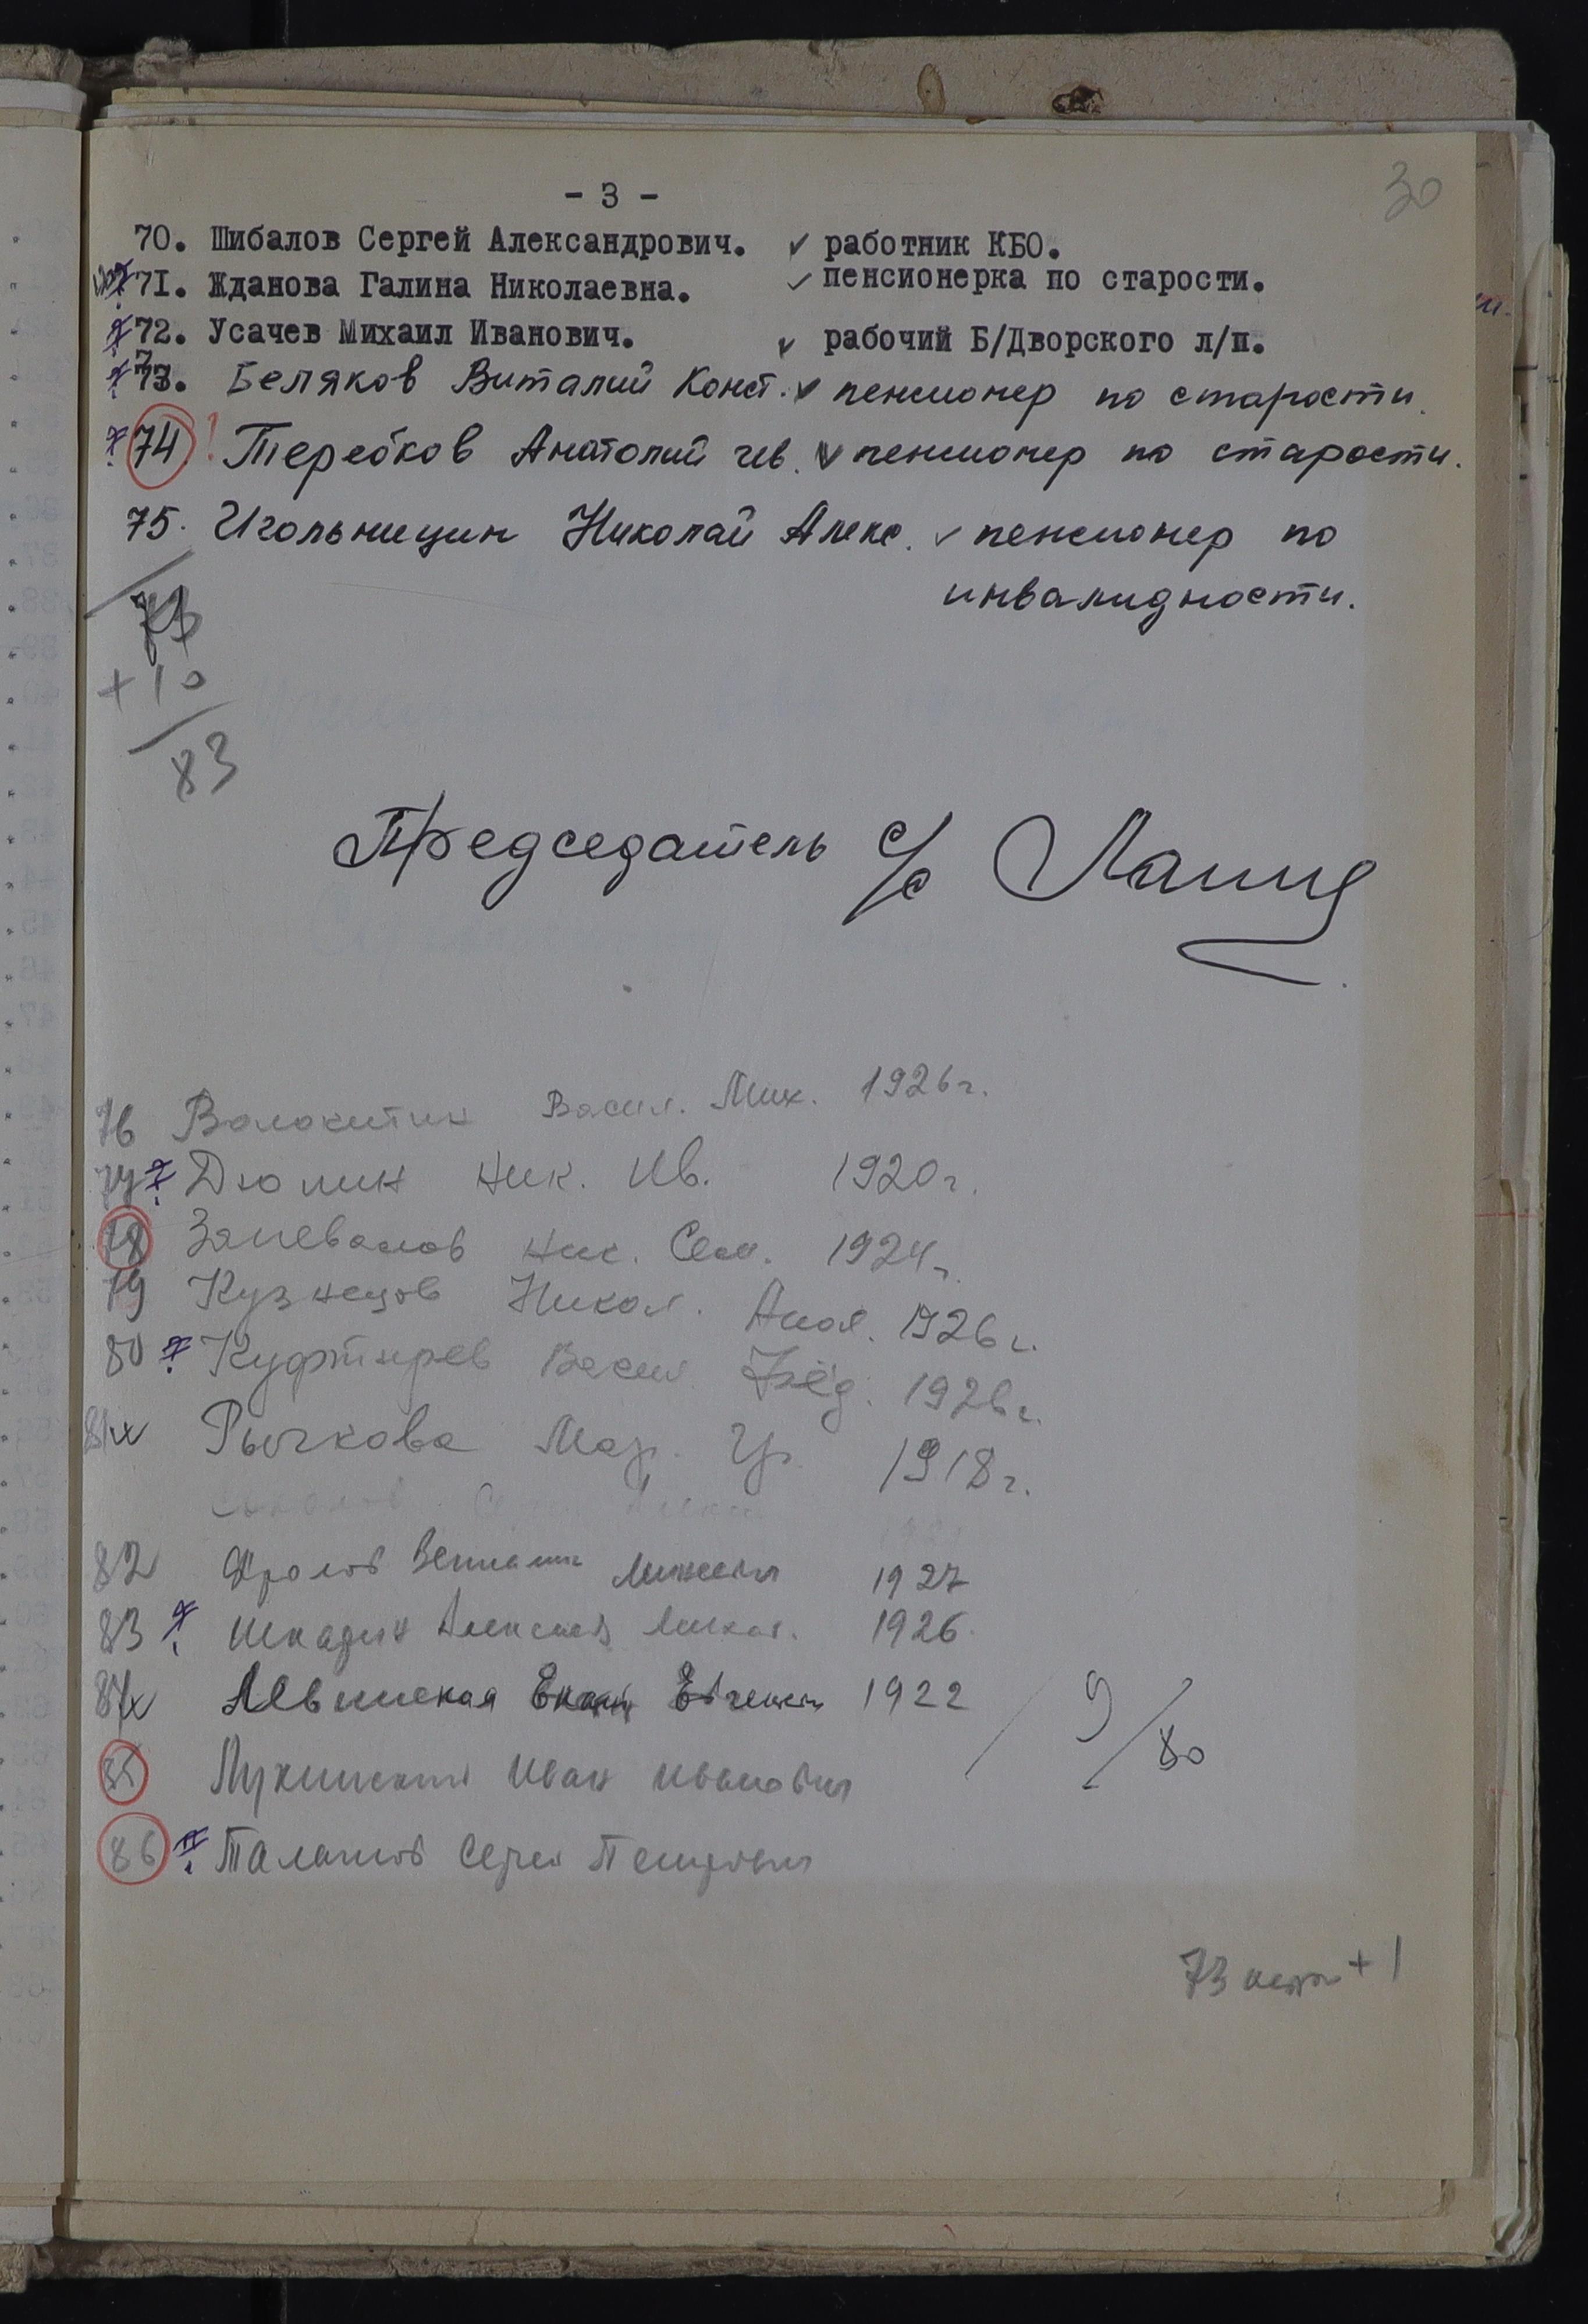 - 3 -
30
70. Шибалов Сергей Александрович. ✓ работник КБО.
71. Жданова Галина Николаевна. ✓ пенсионерка по старости.
72. Усачев Михаил Иванович. ✓ рабочий Б/Дворского л/п.
73. Беляков Виталий Конст. ✓ пенсионер по старости.
74. ! Теребков Анатолий ✓ пенсионер по старости.
75. Игольницин Николай Алекс. ✓ пенсионер по
инвалидности.
+ 10
83
Председатель с/с
76 Волокитин Васил. Мих. 1926 г.
77 Дюмин Ник. Ив. 1920 г.
78 Запевалов Ник. Сем. 1924 г.
79 Кузнецов Никол. 1926 г.
80 Куфтырев Васил Фёд. 1926 г.
81 Рычкова Мар. Гр. 1918 г.
82 Фролов Вениамин 1927
83 Шкадин Алексей 1926
84 Левинская Евгеньевн 1922
9/80
85 Иван Иванович
86 Талатов Сергей Петрович
73 + 1